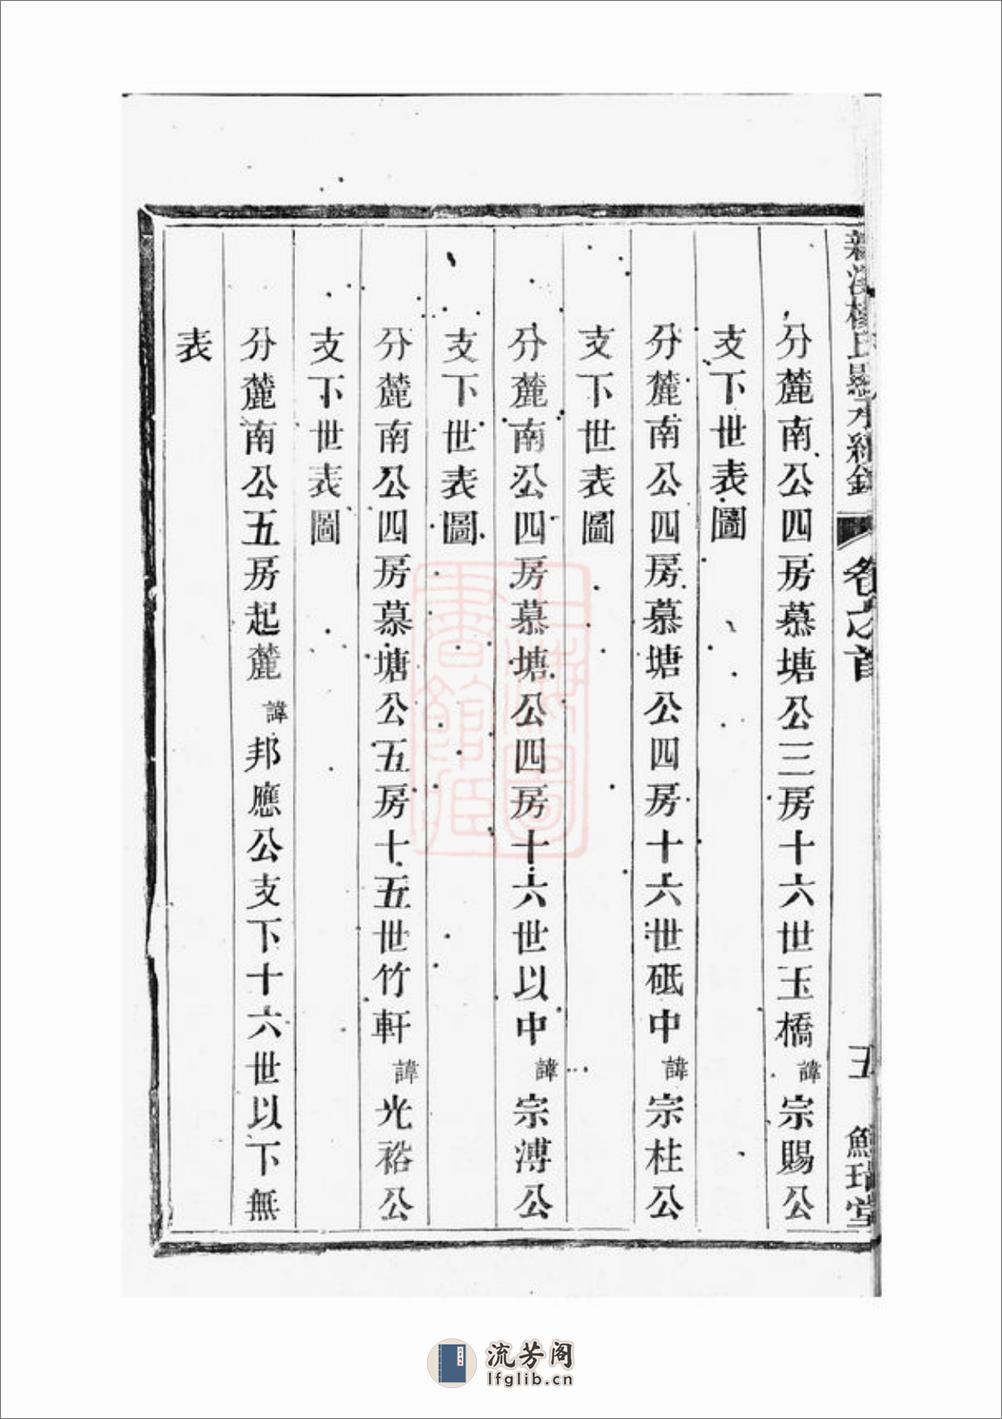 分麓南公四房慕塘公三房十六世玉橋諱宗賜公
支下世表圖
分麓南公四房慕塘公四房十六世砥中諱宗柱公
支下世表圖
分麓南公四房慕塘公四房十六世以中諱宗溥公
支下世表圖
分麓南公四房慕塘公五房十五世竹軒諱光裕公
支下世表圖
分麓南公五房起麓諱邦應公支下十六世以下無
表
卷之首
五
上海圖書館藏
流芳阁
lfglib.cn